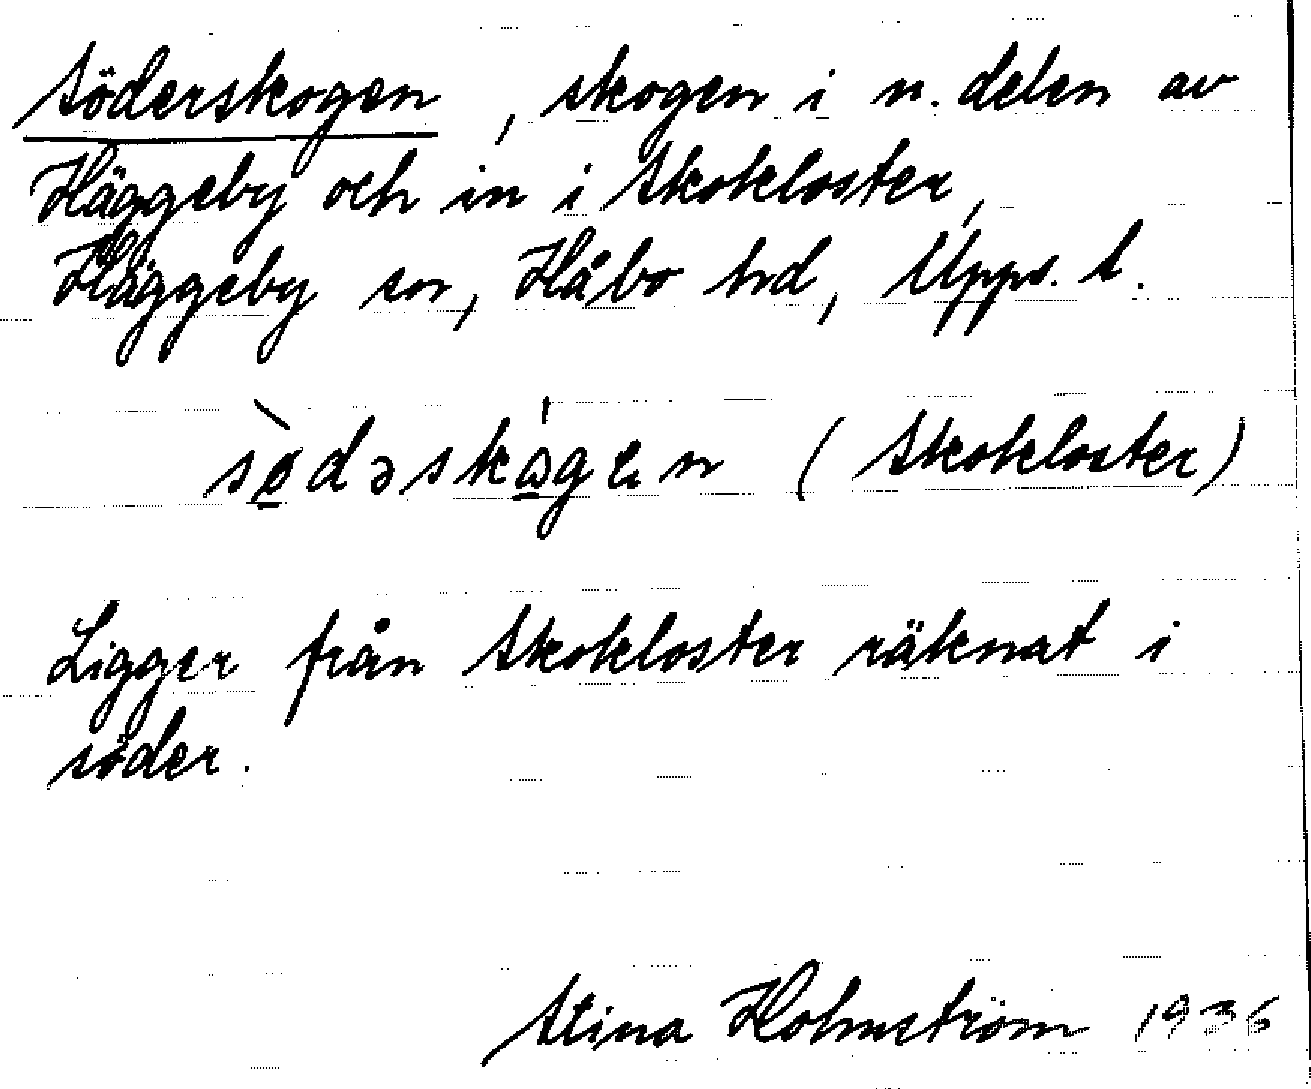 Söderskogen, skogen i n. delen av
Häggeby och in i Skokloster,
Häggeby sn, Håbo hd, Upps. l.
sødəskågen (Skokloster)
Ligger från Skokloster räknat i
söder.
Stina Holmström 1936